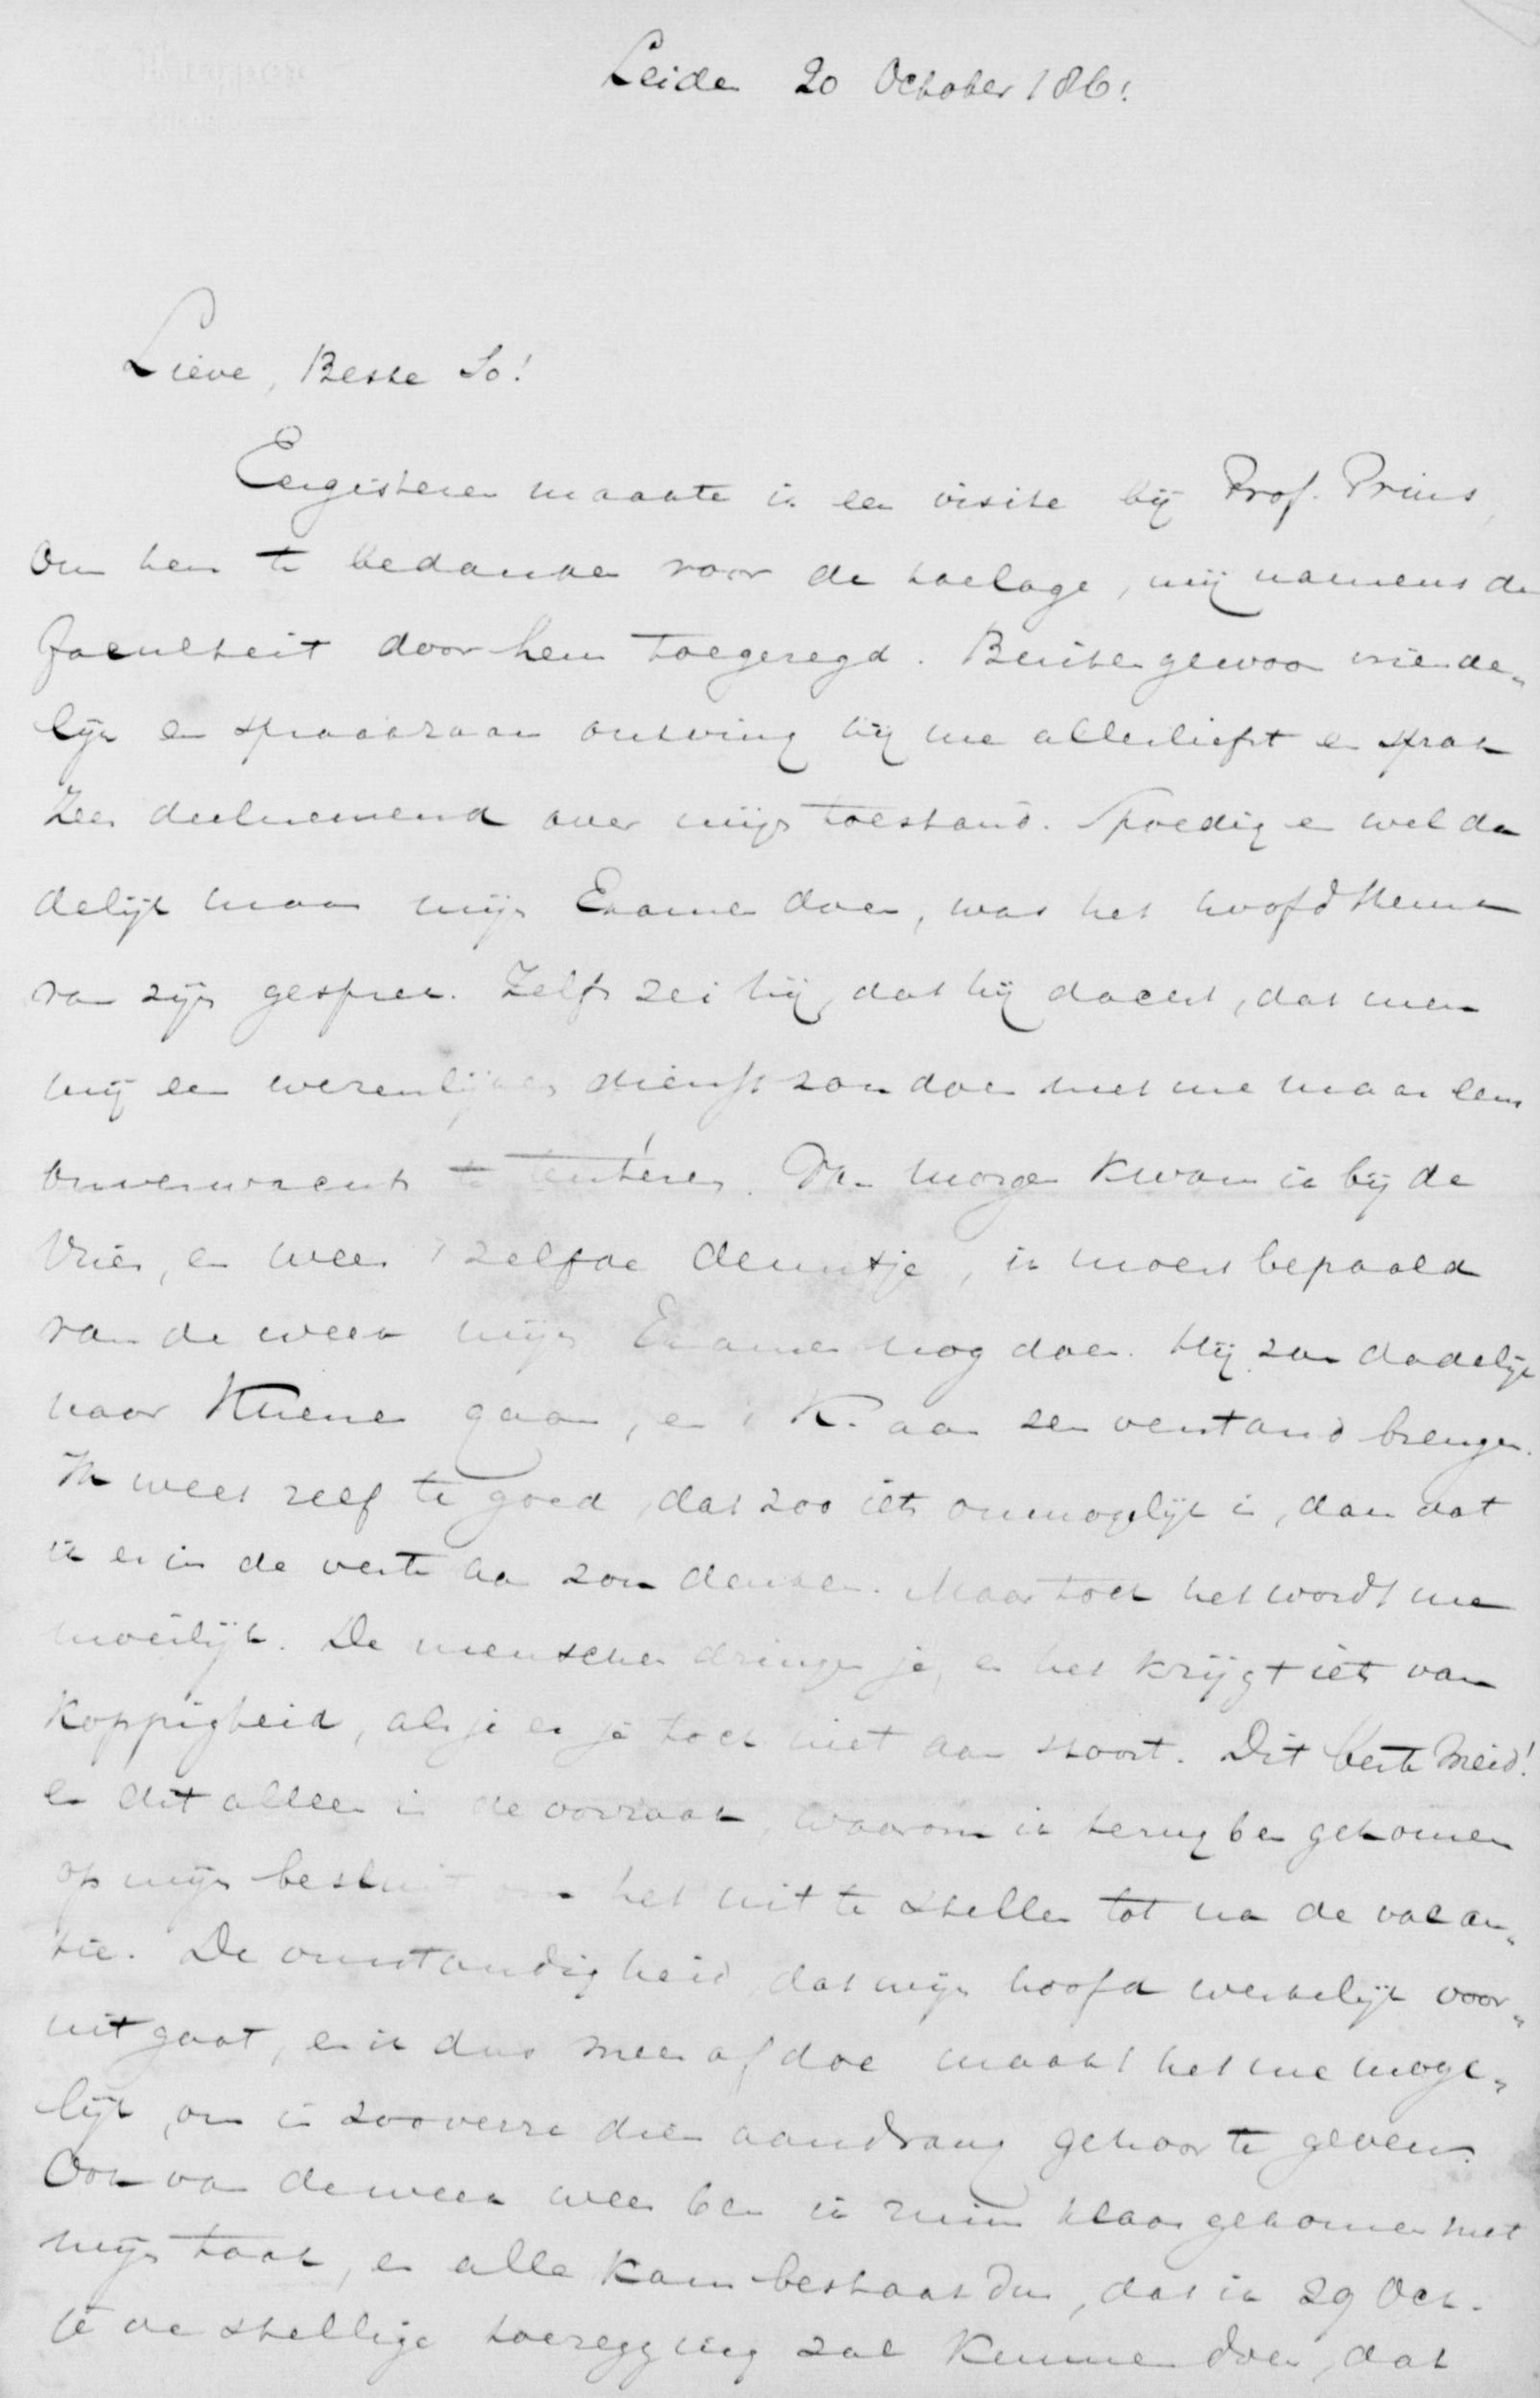 Leiden 20 October 1861
Lieve, Beste Jo!
Eergisteren maakte ik een visite bij Prof. Prins,
om hem te bedanken voor de toelage, mij namens de
faculteit door hem toegezegd. Buitengewoon vriende„
lijk en spraakzaam ontving hij me allerliefst en sprak
zeer deelnemend over mijn toestand. Spoedig en wel da
delijk maar mijn Examen doen, was het hoofdthema
van zijn gesprek. Zelfs zei hij, dat hij dacht, dat men
mij een wezenlijken dienst zou doen met me maar eens
onverwacht te tentéren. Van morgen kwam ik bij de
Vries, en weer 't zelfde deuntje, ik moest bepaald
van de week mijn Examen nog doen. Hij zou dadelijk
naar Kuenen gaan, en 't K. aan zen verstand brengen.
Ik weet zelf te goed, dat zoo iets onmogelijk is, dan dat
ik er in de verte aan zou denken. Maar toch het wordt me
moeilijk. De menschen dringen je, en het krijgt iets van
koppigheid, als je er je toch niet aan stoort. Dit beste meid!
en dit alleen is de oorzaak, waarom ik terug ben gekomen
op mijn besluit om het uit te stellen tot na de vacan„
tie. De omstandigheid dat mijn hoofd werkelijk voor„
uitgaat, en ik dus meer af doe maakt het me moge„
lijk, om in zooverre dien aandrang gehoor te geven.
Ook van de week weer ben ik ruim klaar gekomen met
mijn taak, en alle kans bestaat dus, dat ik 29 Oct.
je de stellige toezegging zal kunnen doen, dat